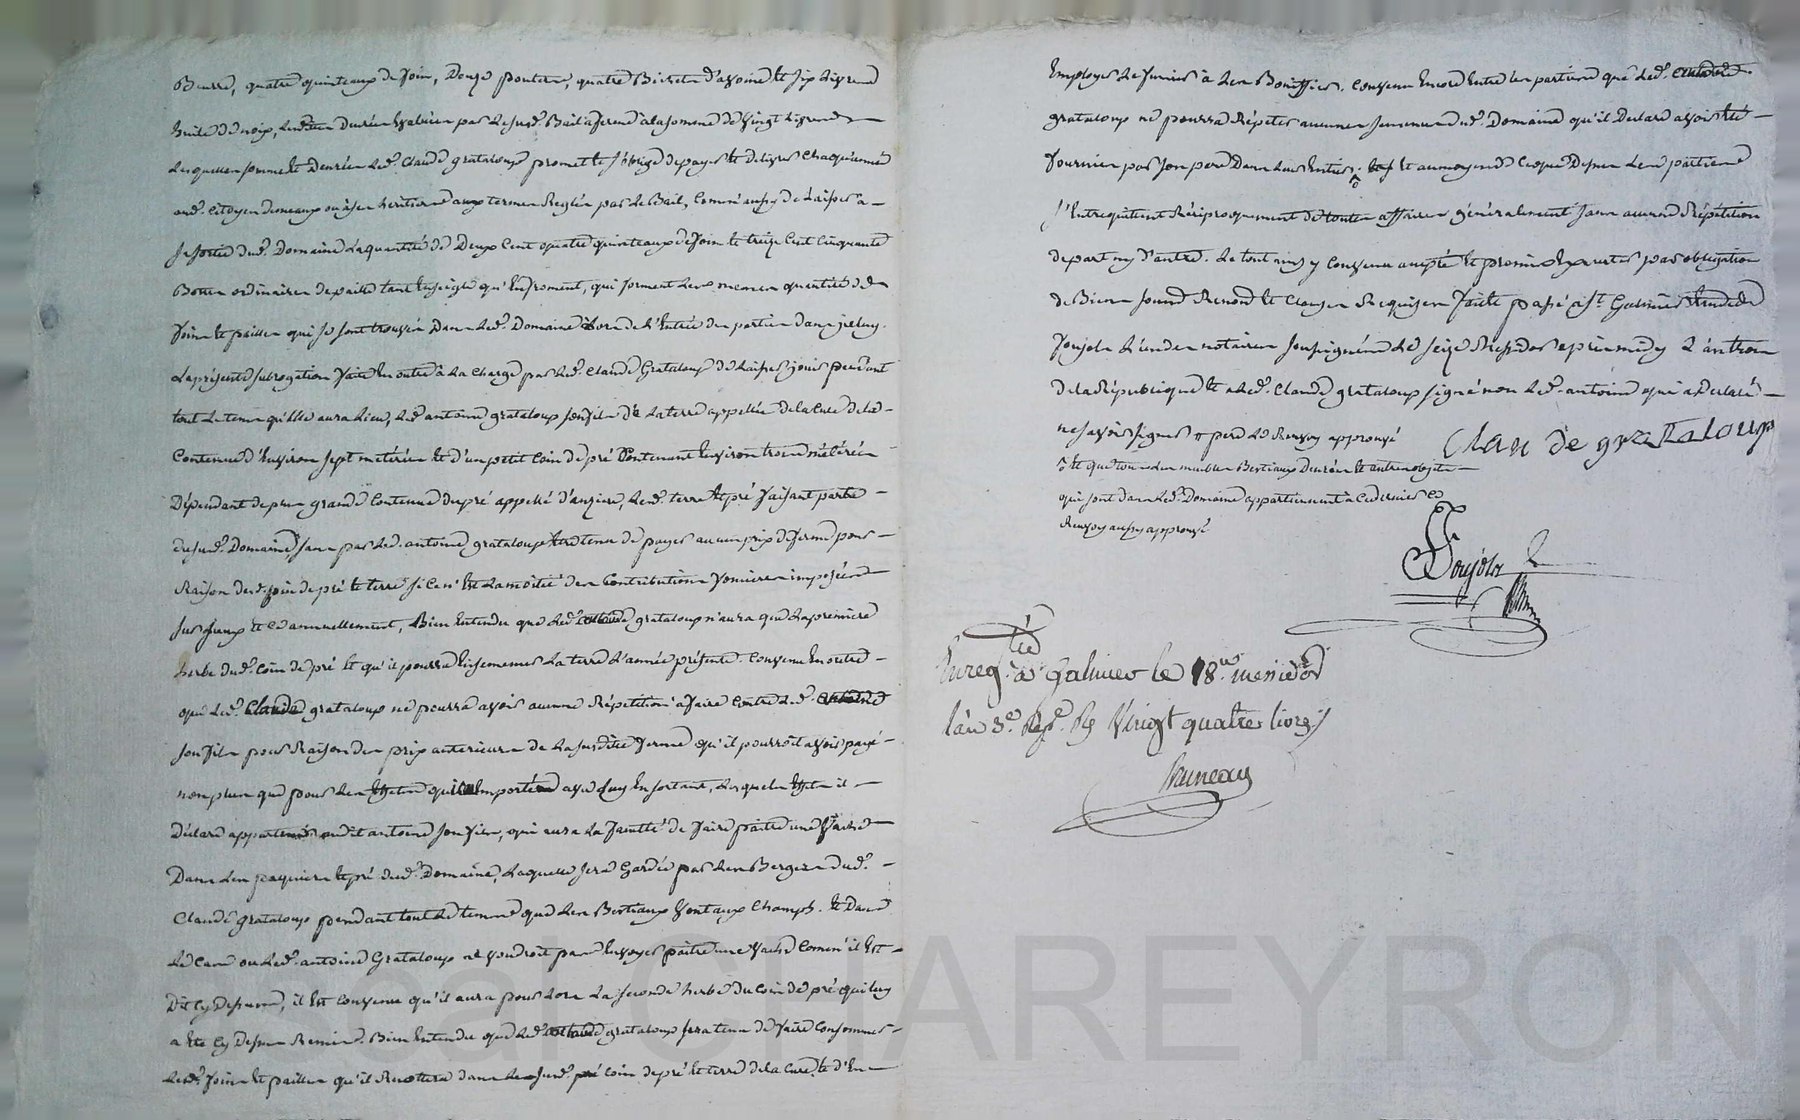 Beurre, quatre quinteaux de foin, Douze poulets, quatre Bichets d'avoine et six Livres
huile de noix, Lesdites Denrées Evaluées par le susd. Bail a ferme à la somme de Vingt Livres
Lesquelles somme et Denrées Led. Claude grataloup promet et s'oblige de payer et delivrer chaqu'année
aud. Citoyen demeaux ou à ses heritiers aux termes Reglés par Le Bail, Comm'aussy de Laisser a
sa sortie dud. Domaine La quantité de Deux Cent quatre quinteaux de foin et treize Cent Cinquante
Bottes ordinaires de paille tant En seigle qu'En froment, qui forment Les memes quantités de
foins et pailles qui se sont trouvés Dans Led. Domaine Lors de L'Entrée des parties dans icelluy.
La présente subrogation faite En outre à La Charge par Led. Claude Grataloup de Laisser jouir pendant
tout Le tems qu'Elle aura Lieu, Led. antoine grataloup son fils de La terre appellée de la Cure de la
Contenue d'Environ sept métérées Et d'un petit Coin de pré Contenant Environ trois métérées
Dépendant de plus grande Contenue du pré appellé d'anzieu, Lesd. terre Et pré faisant partie
du susd. Domaine, sans par Led. antoine grataloup Etre tenu de payer aucun prix de ferme pour
Raison desd. coin de pré et terre si ce n'Est La moitié des Contributions foncieres imposées
sur iceux Et ce annuellement, Bien Entendu que Led. grataloup n'aura que La premiere
herbe dud. Coin de pré Et qu'il pourra Ensemencer La terre L'année présente. Convenu En outre
que Led. Claude grataloup ne pourra avoir aucune Répétition a faire Contre Led. antoine
son fils pour Raison des prix anterieurs de La susditte ferme qu'il pourroit avoir payé
non plus que pour Les Effets qu'il Emportera avec Luy En sortant, Lesquels Effets il
Déclare appartenir audit antoine son fils, qui aura La faculté de faire paitre une Vache
Dans Les paquiers Et pré dud. Domaine, Laquelle sera Gardée par Les Bergers dud.
Claude grataloup pendant tout Le temps que Les Bestiaux Vont aux Champs. Et Dans
Le Cas ou Led. antoine Grataloup ne voudroit pas Envoyer paitre une vache Comm'il Est
Dit Cy Dessus, il Est Convenu qu'il aura pour Lors La seconde herbe du Coin de pré qui luy
a Eté Cy Dessus Remis. Bien Entendu que Led. grataloup sera tenu de faire Consommer
Lesd. foins Et pailles qu'il Récoltera dans Les susd. coin de pré Et terre de la Cure, Et d'En
Employer Le fumier à Les Bonifier. Convenu Encore Entre Les parties que Led.
grataloup ne pourra Répéter aucunes semences dud. Domaine qu'il Declare avoir Eté
fournies par son pere Dans Leur Entier, Et au moyen de Ce que Dessus Les parties
s'Entrequittent Réciproquement de toutes affaires généralement sans aucune Répétition
de part ny d'autre. Le tout ainsy Convenu accepté Et promis Executer par obligation
de Biens soumis Renoncé Et Clauses Requises. fait Et passé a St. Galmier Etude de
foujols L'un des notaires soussignés Le seize Messidor apres midy L'an trois
de la République Et Led. Claude grataloup signé non Led. antoine qui a Déclaré
ne savoir signer pere Le Renvoy approuvé
Clau de grataloup
Et que tous Les meubles Bestiaux Denrées Et autres objets
qui sont dans Led. Domaine appartiennent à Ce dernier
Renvoy aussy approuvé
foujols
Enreg.té à St Galmier le 18.e messidor
l'an 3.e Rep.e Rs Vingt quatre livres
Bruneau